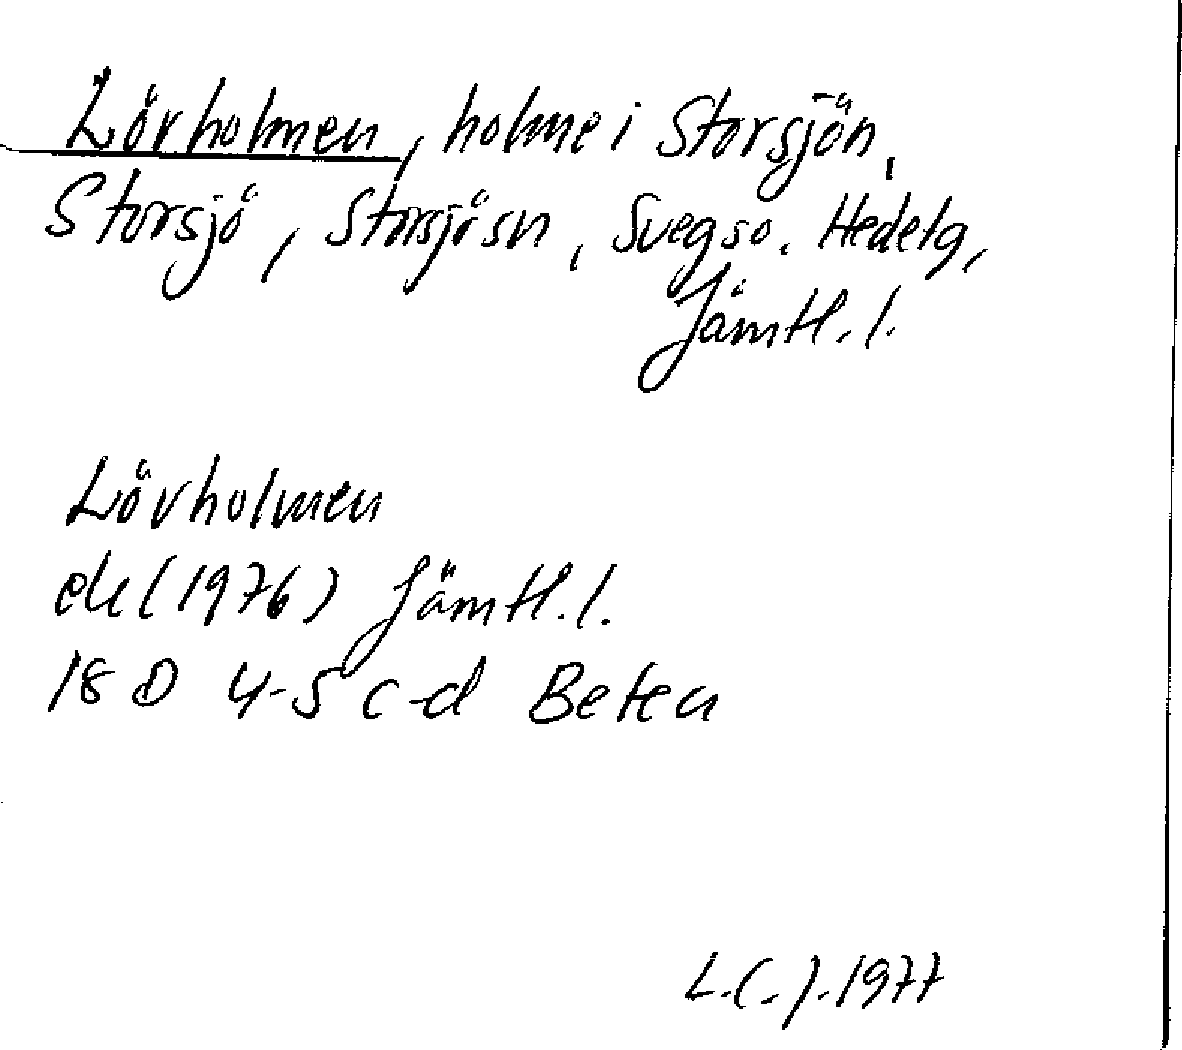 Lövholmen, holme i Storsjön,
Storsjö, Storsjösn, Svegs o. Hedelg,
Jämtl. l.
Lövholmen
ek (1976) Jämtl. l.
18 D 4-5 c-d Beten
L.C.J. 1977